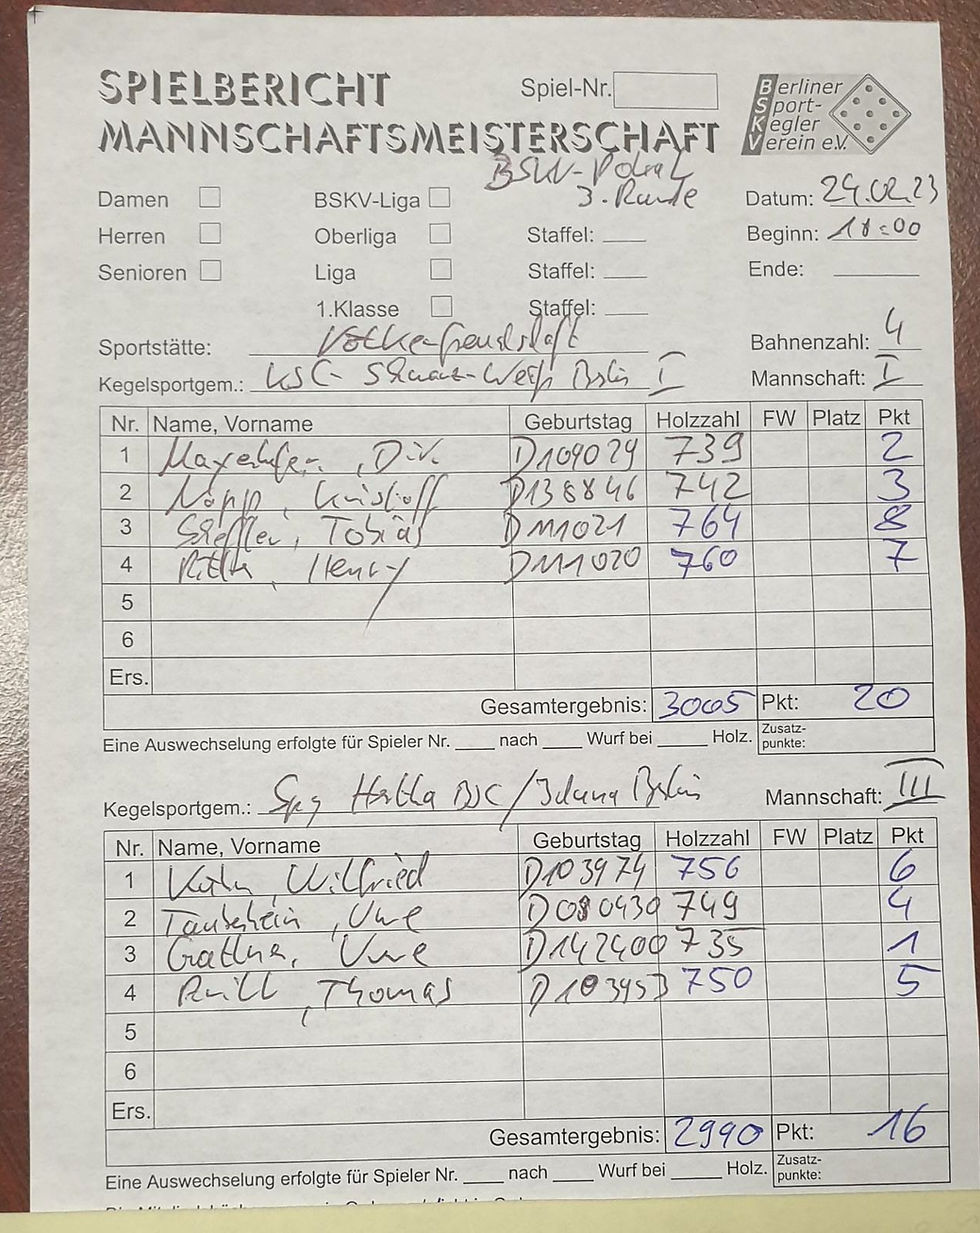 SPIELBERICHT
MANNSCHAFTSMEISTERSCHAFT
Spiel-Nr.
Berliner
Sport-
Kegler
Verein e.V.
BSKV-Pokal
3. Runde
Datum: 24.02.23
Damen BSKV-Liga
Herren Oberliga Staffel: ___ Beginn: 18:00
Senioren Liga Staffel: ___ Ende: ___
1.Klasse Staffel: ___
Sportstätte: Bahnenzahl: 4
Kegelsportgem.: KSC- Schwarz-Weiß Berlin I Mannschaft: I
Nr. Name, Vorname Geburtstag Holzzahl FW Platz Pkt
1 D109029 739 2
2 D138846 742 3
3 Tobias D111021 764 8
4 Henry D111020 760 7
5
6
Ers.
Gesamtergebnis: 3005 Pkt: 20
Eine Auswechselung erfolgte für Spieler Nr. ___ nach ___ Wurf bei ___ Holz. Zusatz-
punkte:
Kegelsportgem.: Spg Hertha BSC / Iduna Berlin Mannschaft: III
Nr. Name, Vorname Geburtstag Holzzahl FW Platz Pkt
1 Wilfried D103974 756 6
2 , Uwe D080430 749 4
3 Uwe D142400 735 1
4 , Thomas D103953 750 5
5
6
Ers.
Gesamtergebnis: 2990 Pkt: 16
Eine Auswechselung erfolgte für Spieler Nr. ___ nach ___ Wurf bei ___ Holz. Zusatz-
punkte: